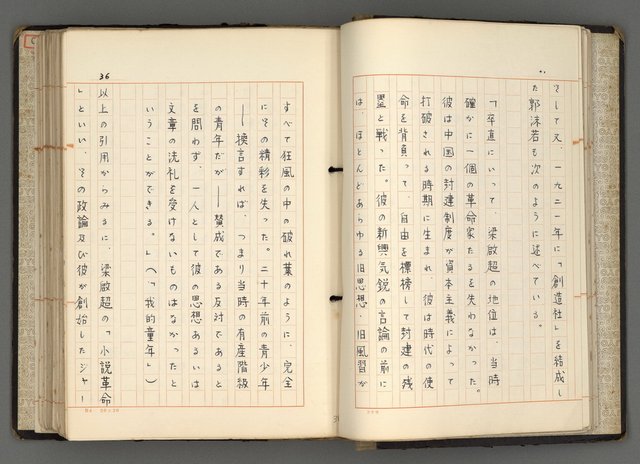 そして又、一九二一年に「創造社」を結成し
た郭沫若も次のように述べている。
「卒直にいって、梁啟超の地位は、当時
確かに一個の革命家たるを失わなかった。
彼は中国の封建制度が資本主義によって
打破される時期に生まれ、彼は時代の使
命を背負って、自由を標榜して封建の残
塁と戦った。彼の新興気鋭の言論の前に
は、ほとんどあらゆる旧思想、旧風習が
すべて狂風の中の破れ葉のように、完全
にその精彩を失った。二十年前の青少年
——換言すれば、つまり当時の有産階級
の青年だが——賛成である反対であると
を問わず、一人として彼の思想あるいは
文章の洗礼を受けないものはなかったと
いうことができる。」(「我的童年」)
36
以上の引用からみるに、梁啟超の「小説革命
」といい、その政論及び彼が創始したジャー